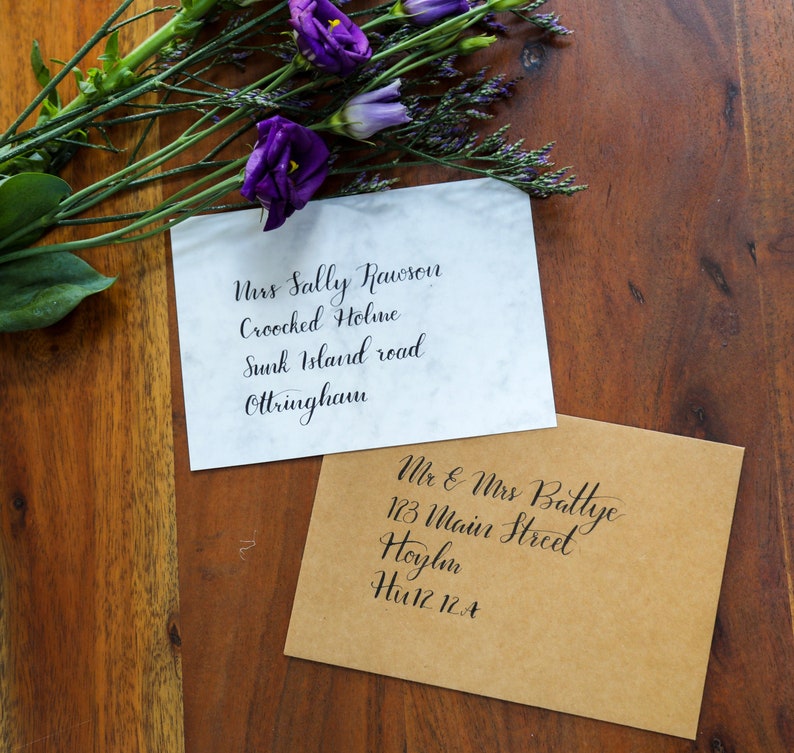 Mrs Sally Rawson
Croocked Holme
Sunk Island road
Ottringham
Mr & Mrs Battye
123 Main Street
Hoylm
Hu12 12A